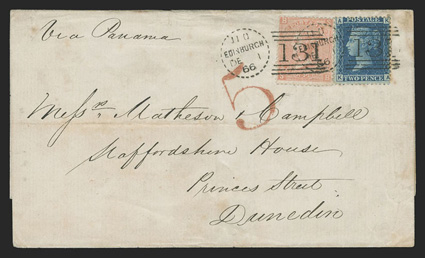 Via Panama
11 O
EDINBURGH
DE 1
66
131
POSTAGE
TWO PENCE
5
Messrs. Matheson & Campbell
Staffordshire House
Princes Street
Dunedin